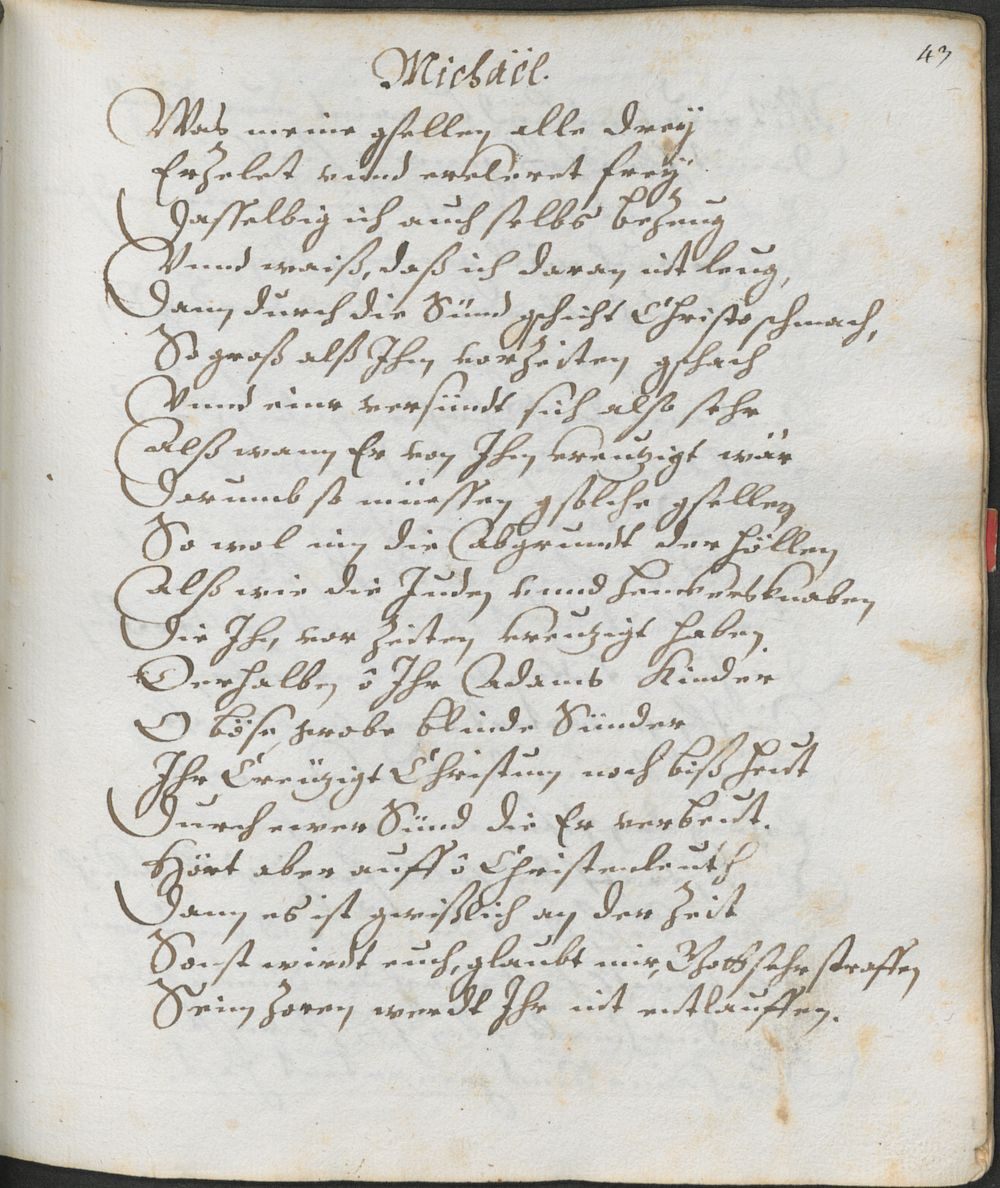 43
Michaël.
Was meine gsellen alle drey
Erzelet vnnd ercleret frey
Dasselbig ich auch selbs bezeug
Vnnd waiß, daß ich daran nit leug,
Dann durch die Sünd gschicht Christo schmach,
So groß alß Ihm vor Zeiten gschach
Vnnd einr versündt sich also sehr
Alß wann Er von Ihm creutzigt wär
Darumb so müessen gsolche gsellen
So wol inn die Abgrundt der Höllen
Alß wie die Juden vnnd Henckersknaben
Die Ihn vor Zeiten creutzigt haben
Derhalben ô Ihr Adams Kinder
O böse, grobe blinde Sünder
Ihr Creützigt Christum noch biß heut
Durch ewer Sünd die Er verbeut.
Hört aber auff ô Christenleuth
Dann es ist gwißlich an der Zeit
Sonst wirdt euch, glaubt mir, Gott sehr straffen
Seim Zoren werdt Ihr nit entlauffen.